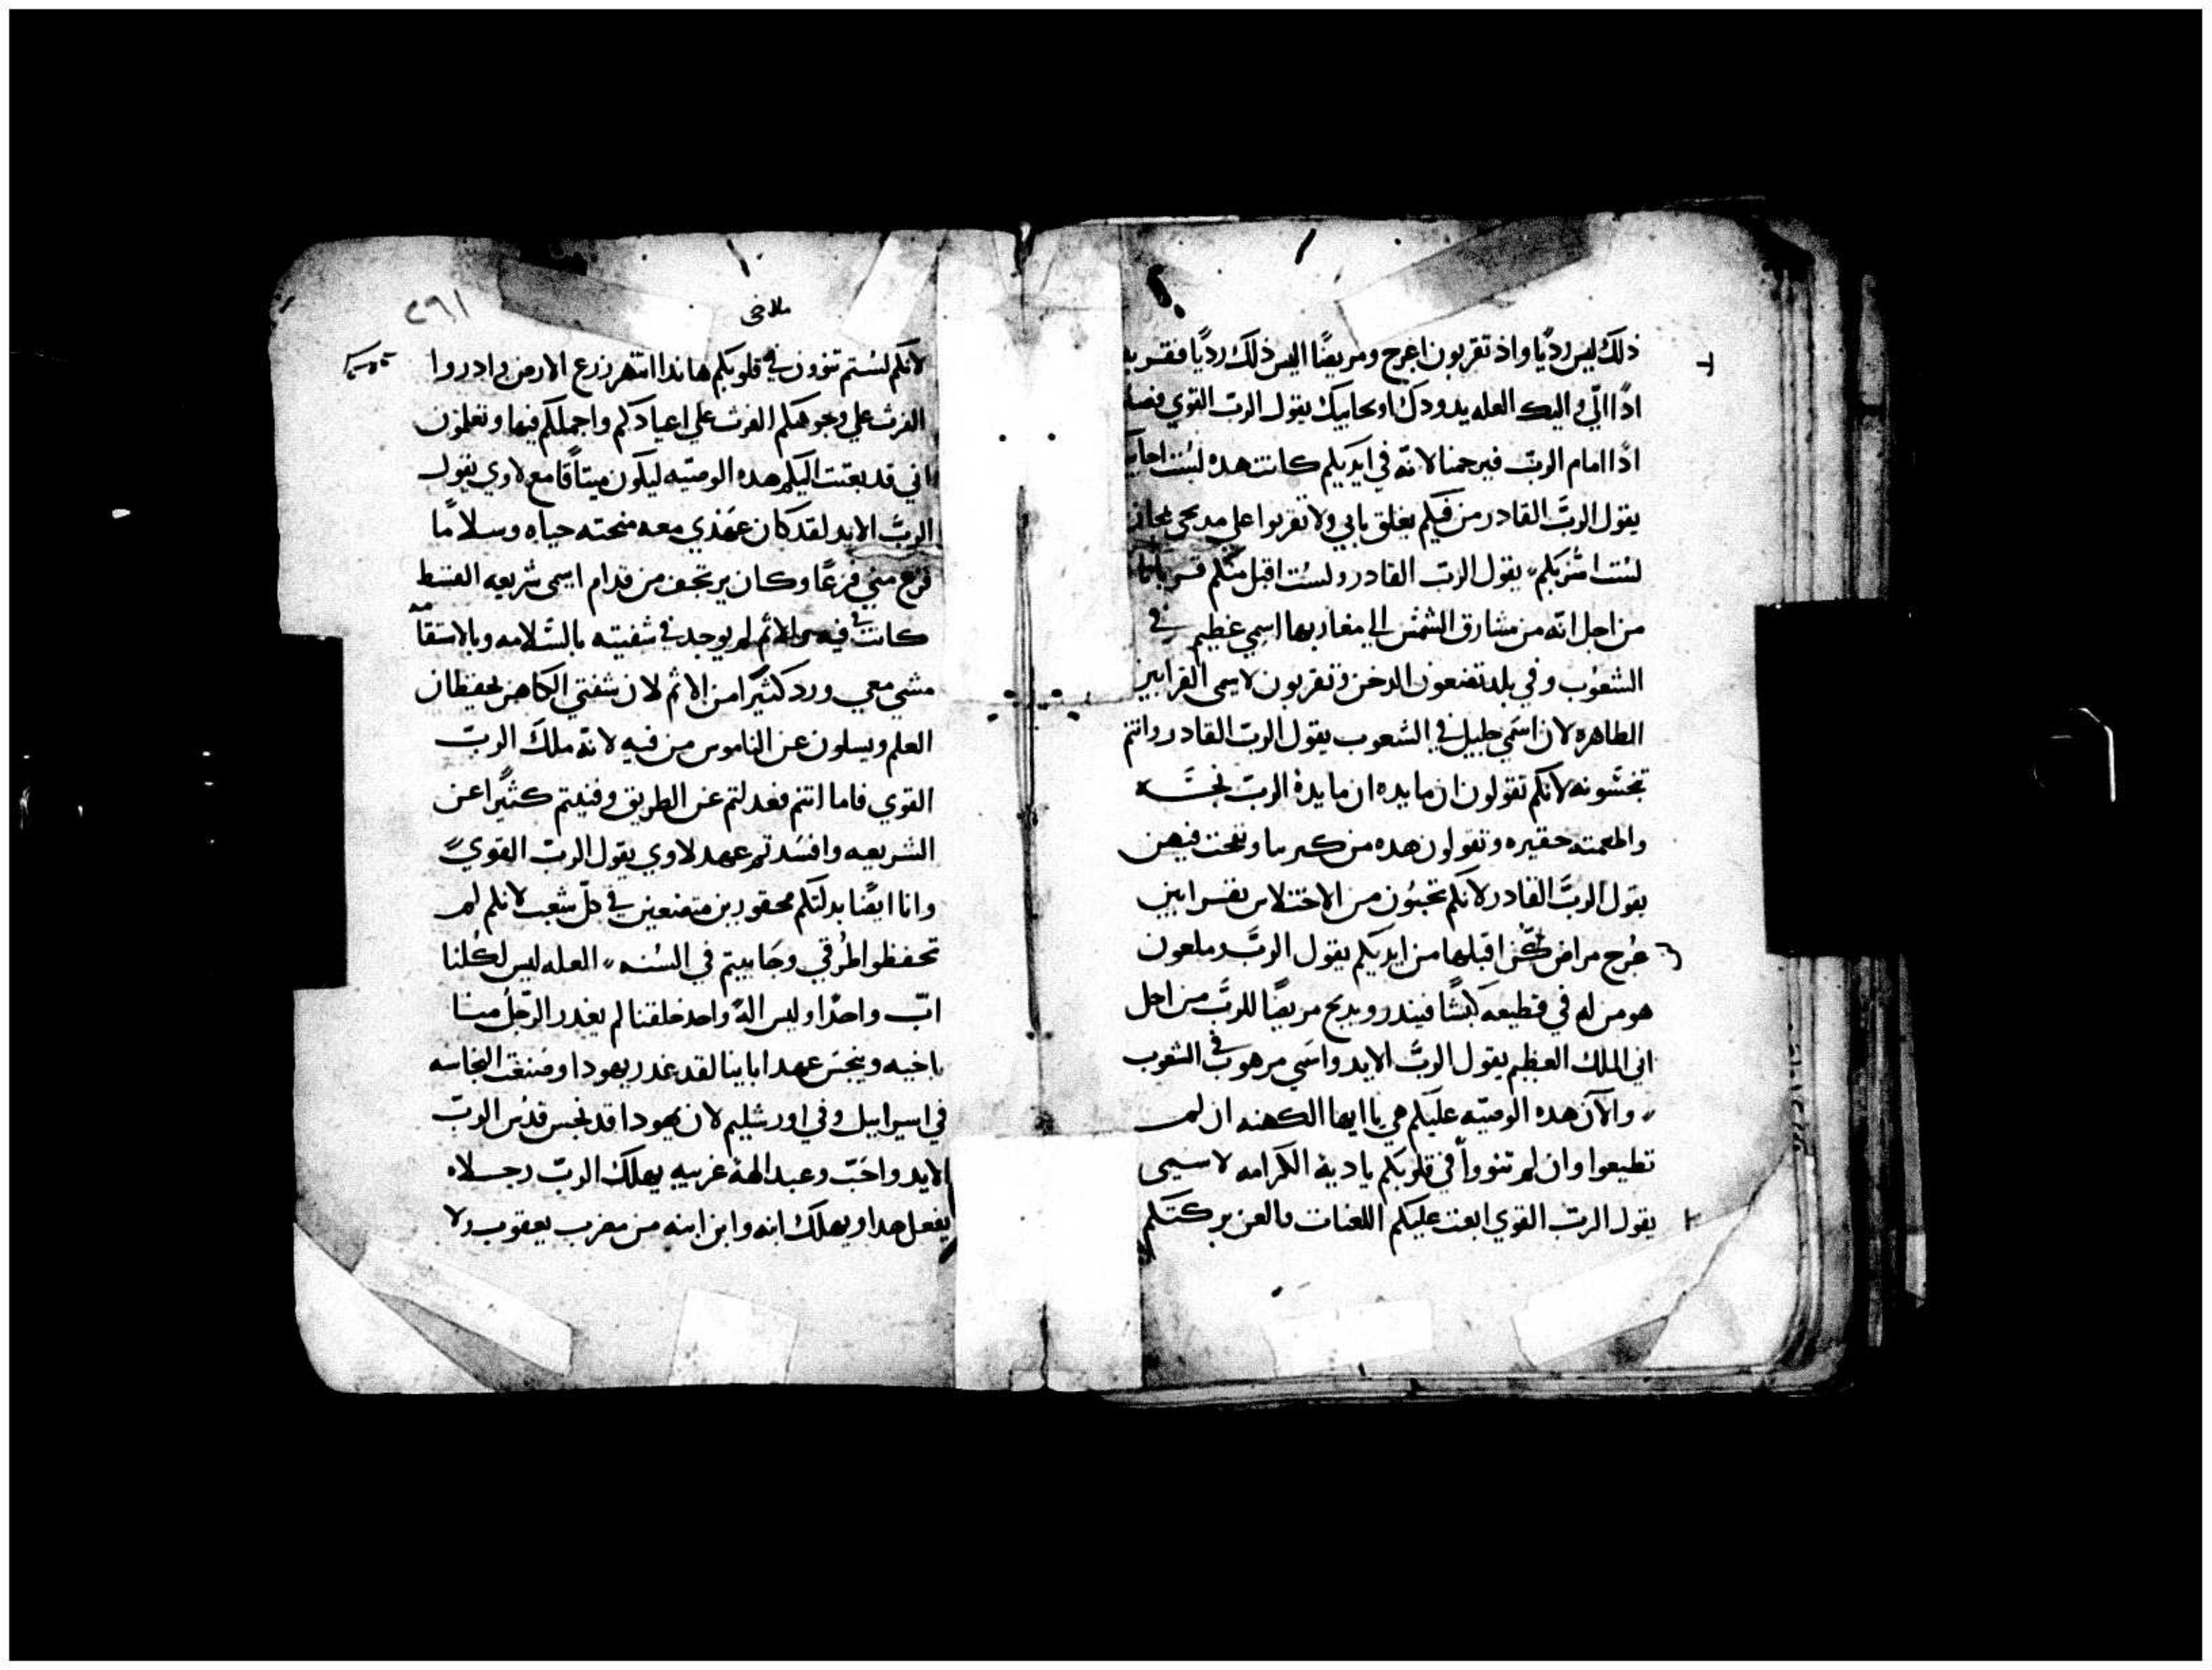 ذلك ليس رديًا واذ تقربون اعرج ومريضًا اليس ذلك رديًا فقربه
اذًا الي واليك العله يدودك او يحابيك يقول الربّ القوي
اذًا امام الربّ فيرحمنا لانّه في ايديكم كانت هده لست
يقول الربَّ القادر من فيكم يغلق بابي ولا تقربوا على مدبحي مجانا
لست اسُرّبكم، يقول الربّ القادر ولست اقبل منكم قربانا
من اجل انّه من مشارق الشمس الي مغاربها اسمي عظيم في
الشعوب وفي بلد تضعون الدخن وتقربون لاسمي القرابين
الطاهره لان اسمي جليل في الشعوب يقول الربّ القادر وانتم
تنجسونه لانكم تقولون ان مايده ان مايدة الربّ نجسه
حقيره وتقولون هده من
يقول الربَّ القادر لانكم تجبون من الاختلاس بقرابين
عُرج مراض اقبلها من ايديكم يقول الربّ وملعون
هو من له في قطيعه كبشًا فيندر ويدبح مريضًا للربَّ من اجل
اني الملك العظيم يقول الربَّ الايد واسمي مرهوب في الشعوب
والان هده الوصيّه عليكم هي يا ايها الكهنه ان لم
تطيعوا وان لم تنووا في قلوبكم يا دية الكرامه لاسمي
يقول الربّ القوي ابعت عليكم اللعنات والعن بركتكم
ملاخي
٢٩١
لانكم لستم تنوون في قلوبكم هاندا انتهر زرع الارض وادروا
الفرث علي وجوهكم الفرث علي اعيادكم واجملكم فيها وتعلمون
اني قد بعتت اليكم هده الوصيّه ليكون ميتاقا مع لاوي يقول
الربّ الايد لقد كان عهدي معه منحته حياه وسلامًا
فزع مني فزعًا وكان يرتجف من قدام اسمي شريعه القسط
كانت في فيه والاثم لم يوجد في شفتيه بالسّلامه وبالاستقا
مشي معي ورد كثيرًا من الاثم لان شفتي الكاهن يحفظان
العلم ويسلون عن الناموس من فيه لانّه ملك الربّ
القوي فاما انتم فعدلتم عن الطريق وفنيتم كثيرًا عن
الشريعه وافسدتم عهد لاوي يقول الربّ القوي
وانا ايضًا بدلتكم محقودين متضعين في كلّ شعب لانكم لم
تحفظوا طرقي وحابيتم في السُنه، العله ليس لكُلنا
ابّ واحدًا وليس الهٌ واحد خلقنا لم يغدر الرّجل منا
باخيه وينجس عهد اباينا لقد غدر يهودا وصنعت النجاسه
في اسراييل وفي اورشليم لان يهودا قد نجس قدس الربّ
الايد واحَبّ وعبد الهة غريبه يهلك الربّ رجلاه
يفعل هدا ويهلك ابنه وابن ابنه من مضرب يعقوب ولا